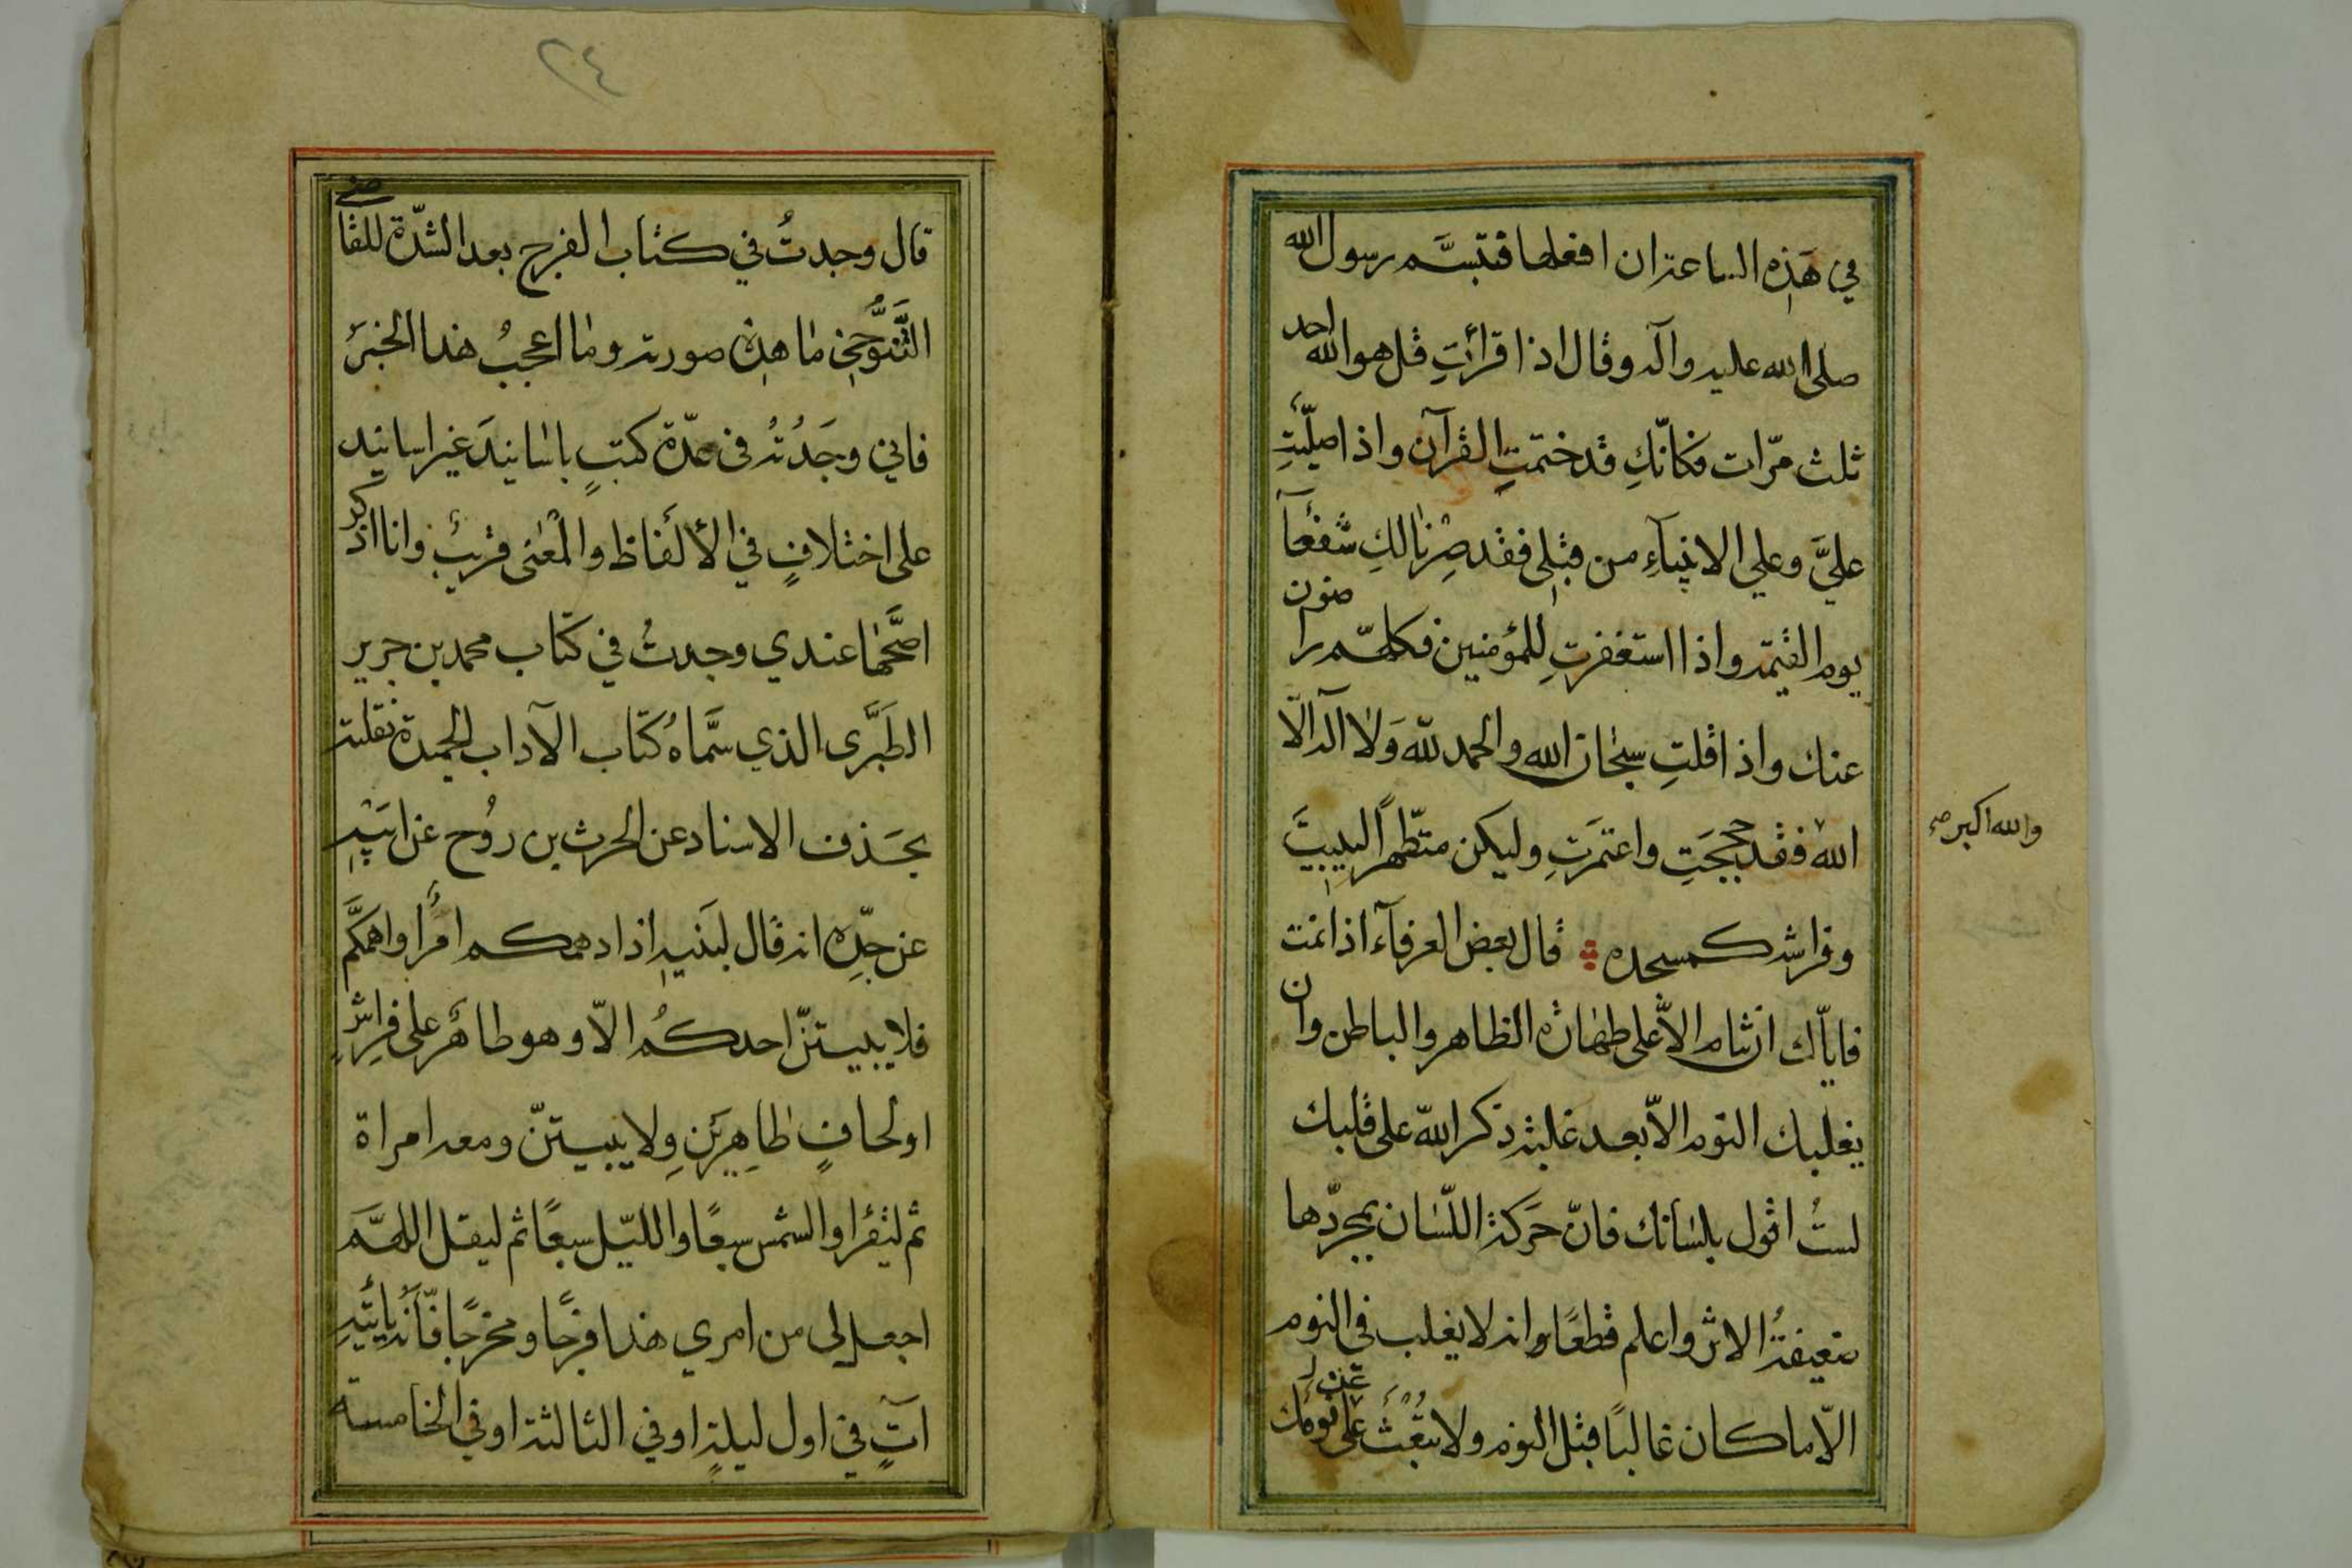 في هَذِهِ الساعة ان افعلها فتبسَّم رسول الله
صلى الله عليه وآله وقال اذا قرأتِ قل هو الله احد
ثلث مرّات فكانّكِ قد ختمتِ القرآن واذا صلّيتِ
عليَّ وعلي الانبيآءِ من قبلي فقد صِرْنا لكِ شفعآَ
يوم القيمة واذا استغفرتِ للمؤمنين فكلهّم راضون
عنك واذا قلتِ سبحان الله والحمد لله وَلا آله الّا
الله فقد حججتِ واعتمرتِ وليكن متطّهراً لبيبيتَ
والله اكبر صح
وفراشه كمسجده قال بعض العرفآء اذا نمت
فايّاك ان تنام الاّ على طهارة الظاهر والباطن وان
يغلبك النوم الاّ بعد غلبة ذكر الله على قلبك
لستُ اقول بلسانك فانّ حَركة اللّسان بمجرّدها
ضعيفةُ الاثر واعلم قطعًا وانه لا يغلب في النوم
الاّ ما كان غالبًا قبل النوم ولا تبْعَثُ عن نومك
٢٤
قال وجدتُ في كتاب الفرج بعد الشدّة للقاضي
التَّنوُّخي ما هذه صورته وما اعجبُ هذا الخبرَ
فاني وجَدْتُه فى عدّة كتبٍ باسانيدَ غير اسانيد
على اختلافٍ في الألفاظ والمْعنى قريبٌ وانا اذكر
اصَّحها عندي وجدتُ في كتاب محمد بن جرير
الطَبَرَّى الذي سمَّاهُ كتاب الآداب الحميدة نقلته
بحَذف الاسناد عن الحرث بن روُح عن ابيْهِ
عن جدِّه انه قال لبَنيهِ اذا دهمكم امرٌ او اهمكَّم
فلا يبيتنّ احدكُم الاّ وهو طاهرٌ على فِراشٍ
او لحافٍ طاهِرَيْنِ ولا يبيتنّ ومعه امراة
ثم ليقرا والشمس سبعًا والليّل سبعًا ثم ليقل اللهمَّ
اجعل لى من امري هذا فرجًا ومخرجًا فانّه يأتيهِ
آتٍ في اول ليلةٍ او في الثالثة او في الخامسة